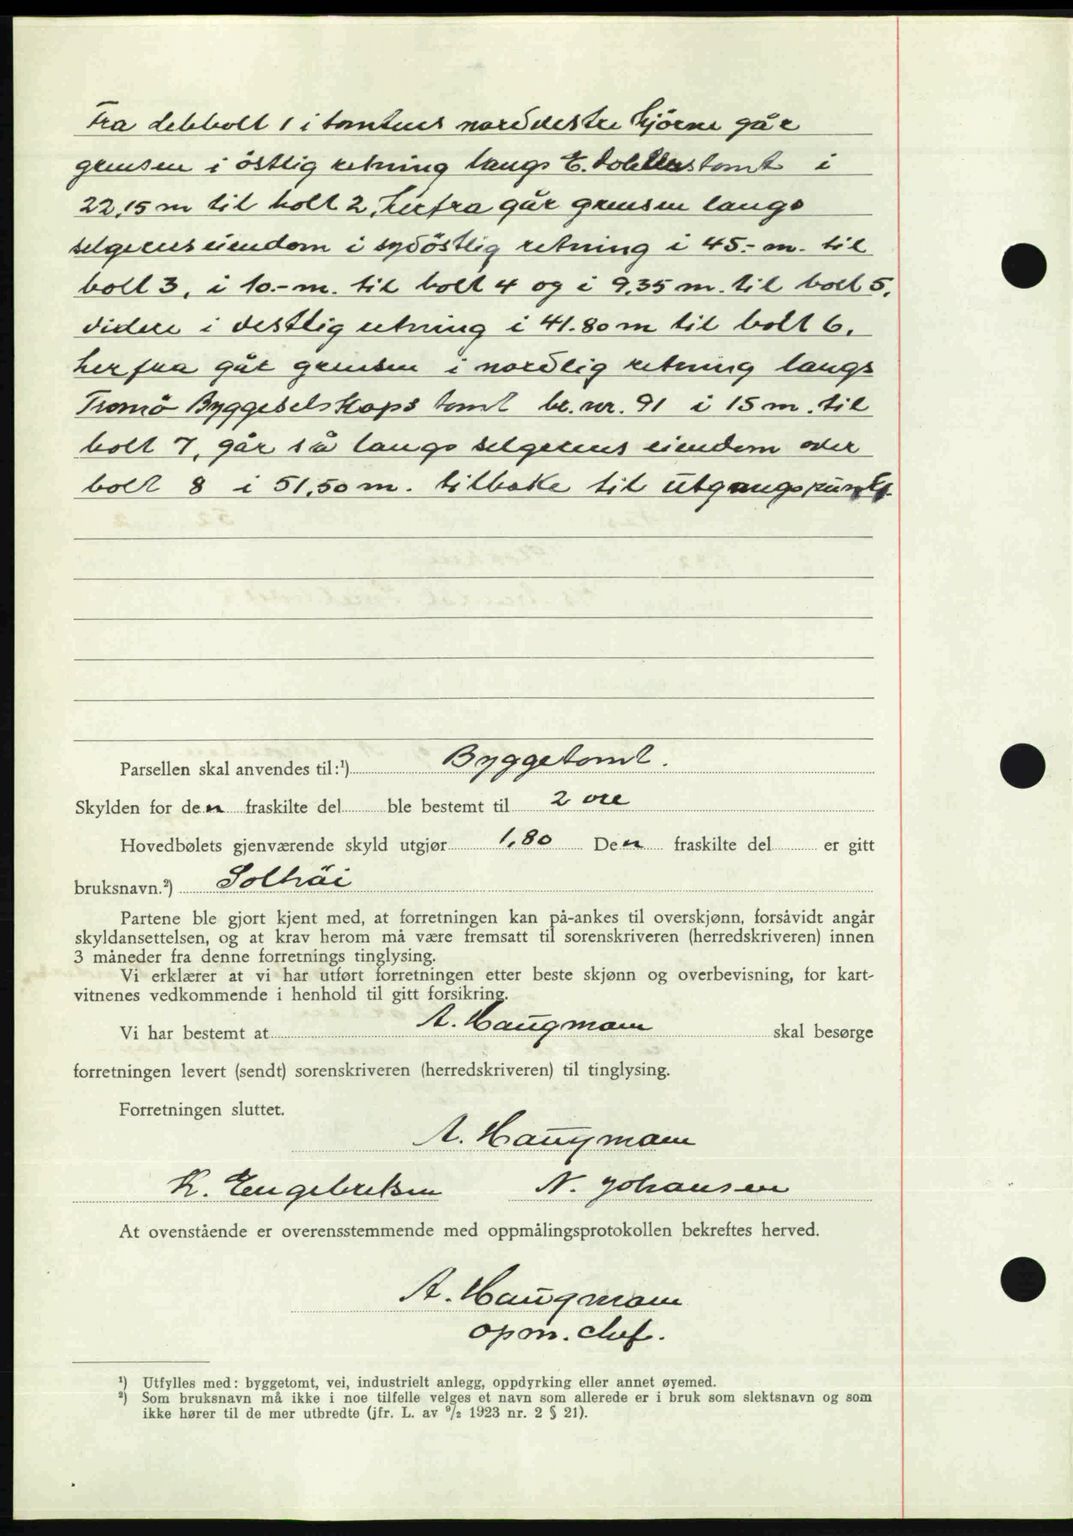 Fra delebolt 1 i tomtens nordvestre hjörne går
grensen i östlig retning langs E. tomt i
22,15 m til bolt 2, herfra går grensen langs
selgerens eiendom i sydöstlig retning i 45.- m. til
bolt 3, i 10.- m. til bolt 4 og i 9,35 m. til bolt 5,
videre i vestlig retning i 41.80 m til bolt 6,
herfra går grensen i nordlig retning langs
Tromö Byggeselskaps tomt br. nr. 91 i 15 m. til
bolt 7, går så langs selgerens eiendom over
bolt 8 i 51,50 m. tilbake til utgangspunkt.
Parsellen skal anvendes til:¹) Byggetomt.
Skylden for den fraskilte del ble bestemt til 2 øre
Hovedbølets gjenværende skyld utgjør 1,80 Den fraskilte del er gitt
bruksnavn.²) Solhöi
Partene ble gjort kjent med, at forretningen kan på-ankes til overskjønn, forsåvidt angår
skyldansettelsen, og at krav herom må være fremsatt til sorenskriveren (herredskriveren) innen
3 måneder fra denne forretnings tinglysing.
Vi erklærer at vi har utført forretningen etter beste skjønn og overbevisning, for kart-
vitnenes vedkommende i henhold til gitt forsikring.
Vi har bestemt at A. Haugmann skal besørge
forretningen levert (sendt) sorenskriveren (herredskriveren) til tinglysing.
Forretningen sluttet.
A. Haugmann
K. Engebretsen N. Johansen
At ovenstående er overensstemmende med oppmålingsprotokollen bekreftes herved.
A. Haugmann
opm. chef.
¹) Utfylles med: byggetomt, vei, industrielt anlegg, oppdyrking eller annet øyemed.
²) Som bruksnavn må ikke i noe tilfelle velges et navn som allerede er i bruk som slektsnavn og som
ikke hører til de mer utbredte (jfr. L. av ⁹/₂ 1923 nr. 2 § 21).